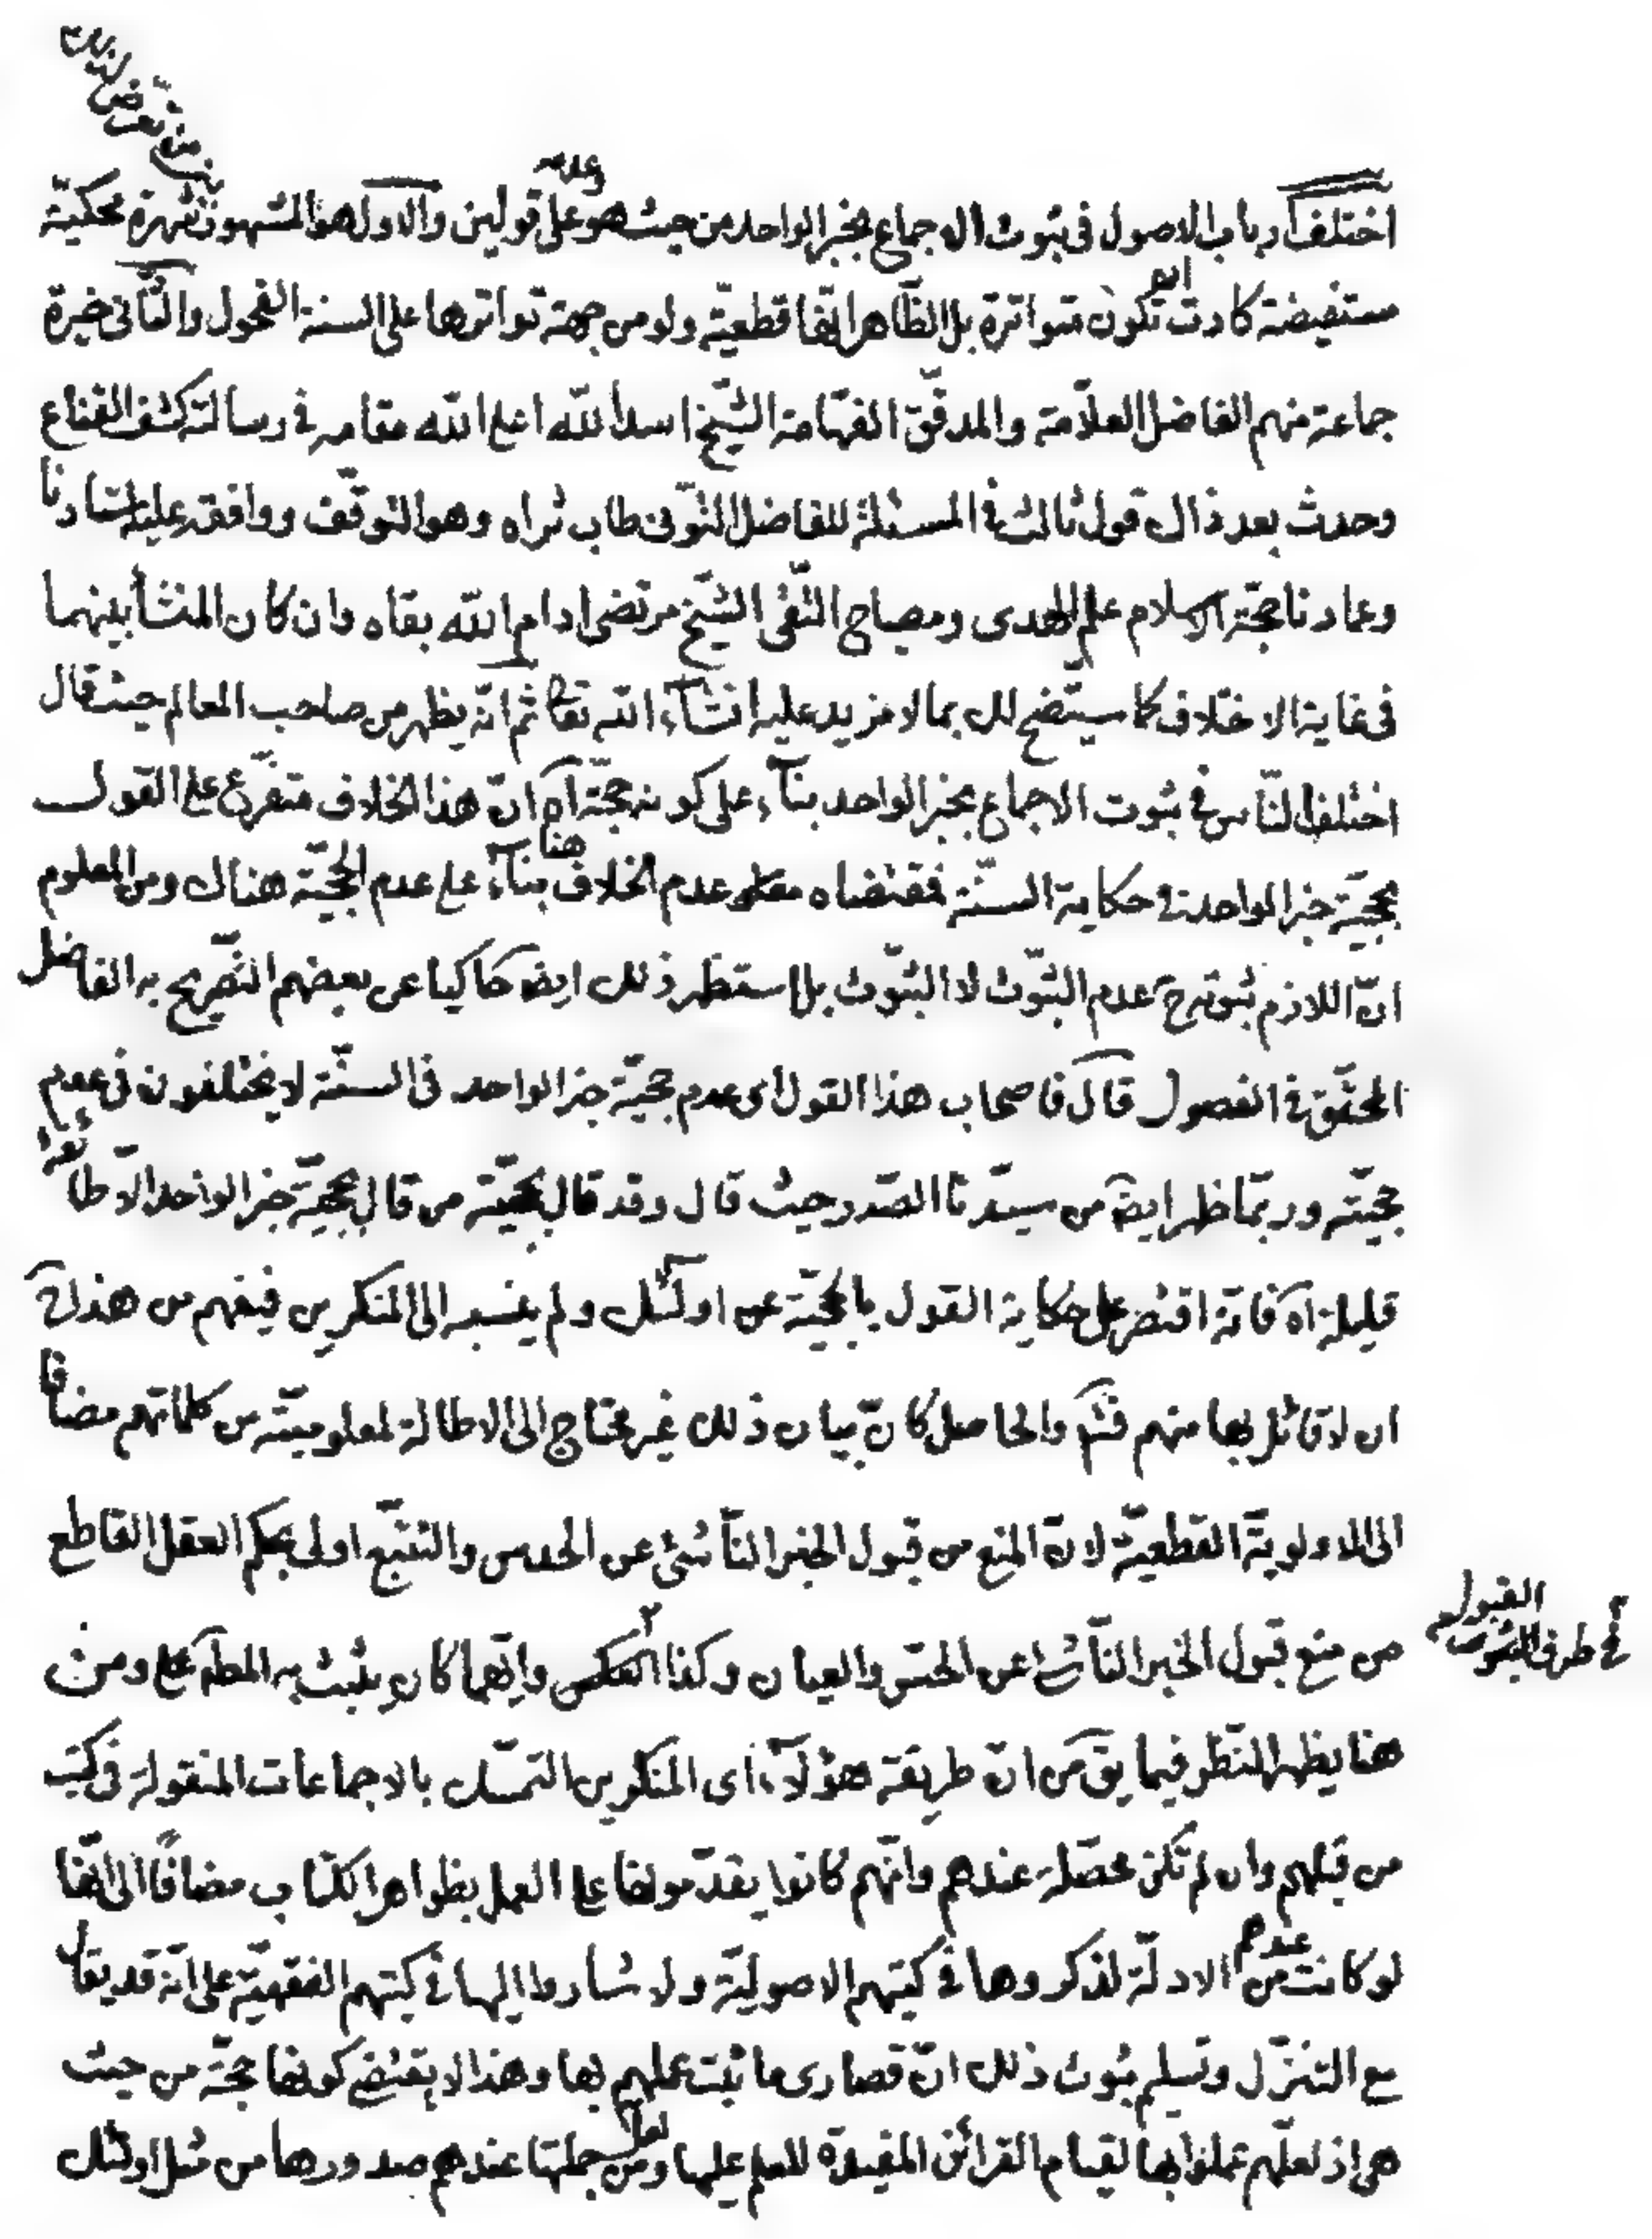 بين من تعرض لذلك
اختلف ارباب الاصول فى ثبوت الاجماع بخبر الواحد من حيث هو وعدمه على قولين والاول هو المشهور شهرة محكيّة
مستفيضة كادت ان تكون متواترة بل الظّاهر انّها قطعيّة ولو من جهة تواترها على السنة الفحول والثّانى خيرة
جماعة منهم الفاضل العلّامة والمدقّق الفهّامة الشّيخ اسد اللّه اعلى اللّه مقامه فى رسالة كشف القناع
وحدث بعد ذاك قول ثالث فى المسئلة للفاضل النّوقى طاب ثراه وهو التوقّف ووافقه عليه استادنا
وعمادنا حجّة الاسلام علم الهدى ومصباح التّقى الشّيخ مرتضى ادام اللّه بقاه وان كان المنشأ بينهما
فى غاية الاختلاف كما سيتّضح لك بما لا مزيد عليه انشآء اللّه تعالى ثم انّه يظهر من صاحب المعالم حيث قال
اختلف النّاس فى ثبوت الاجماع بخبر الواحد بنآء على كونه حجّة آه انّ هذا الخلاف متفرّع على القول
بحجيّة خبر الواحد فى حكاية السنّة فمقتضاه عدم الخلاف هنا بنآء على عدم الحجيّة هناك ومن المعلوم
انّ اللازم ثبوته ح عدم الثبّوت لا الثبّوت بل استظهر ذلك ايضا حاكيا عن بعضهم التّصريح به الفاضل
المحقّق فى الفصول قال فاصحاب هذا القول اى عدم حجيّة خبر الواحد فى السنّة لا يختلفون فى عدم
حجيّته وربّما ظهر ايضا من سيّدنا الصّدر حيث قال وقد قال بحجيّته من قال بحجيّة خبر الواحد الّا طائفة
قليلة آه فانّه اقتصر على حكاية القول بالحجيّة عن اولئك ولم ينسبه الى المنكرين فيفهم من هذا ح
ان لا قائل بها منهم فتم والحاصل كانّ بيان ذلك غير محتاج الى الاطالة لمعلوميّته من كلماتهم مضافا
الى الاولويّة القطعيّة لانّ المنع من قبول الخبر النّاشئ عن الحدس والتتبّع اولى بحكم العقل القاطع
من منع قبول الخبر النّاشئ عن الحسّ والعيان وكذا العكس وايّهما كان يثبت به المط على ومن
فى طرف الثبوت القبول
هنا يظهر النّظر فيما يق من انّ طريقة هؤلآء اى المنكرين التمسّك بالاجماعات المنقولة فى كتب
من قبلهم وان لم تكن محصّلة عندهم وانّهم كانوا يقدّمونها على العمل بظواهر الكتاب مضافًا الى انّها
لو كانت عندهم من الادلّة لذكروها فى كتبهم الاصوليّة ولاشاروا اليها فى كتبهم الفقهيّة على انّه قد يقال
مع التنزّل وتسليم ثبوت ذلك انّ قصارى ما ثبت عملهم بها وهذا لا يقتضى كونها حجّة من حيث
هى اذ لعلّهم عملوا بها لقيام القرائن المفيدة للعلم عليها ولعل من جملتها عندهم صدورها من مثل اولئك